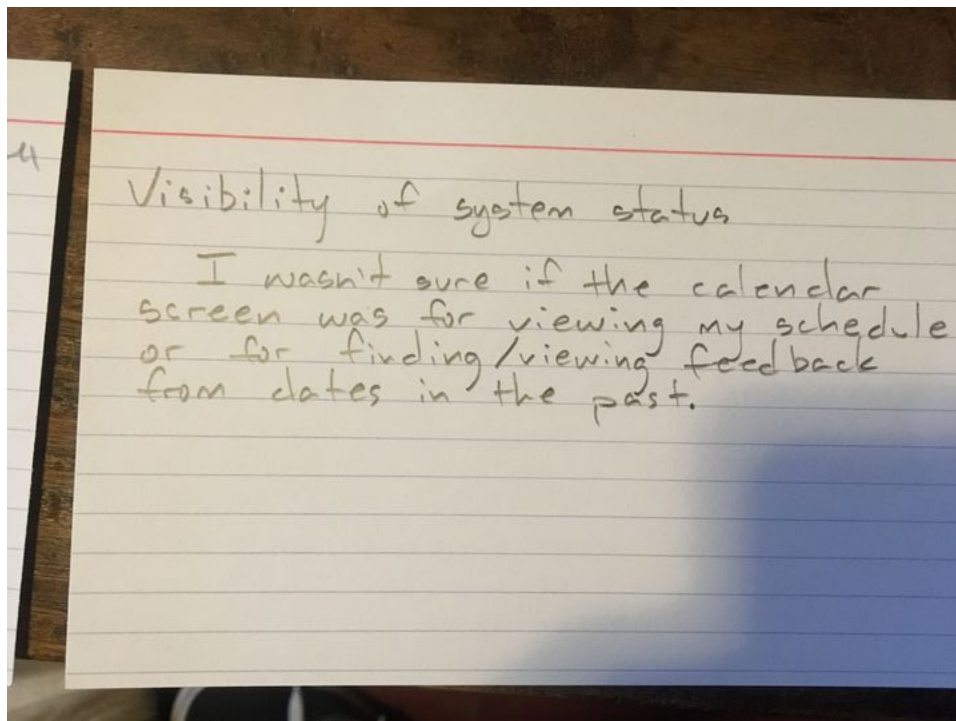 Visibility of system status
I wasn't sure if the calendar
screen was for viewing my schedule
or for finding/viewing feedback
from dates in the past.